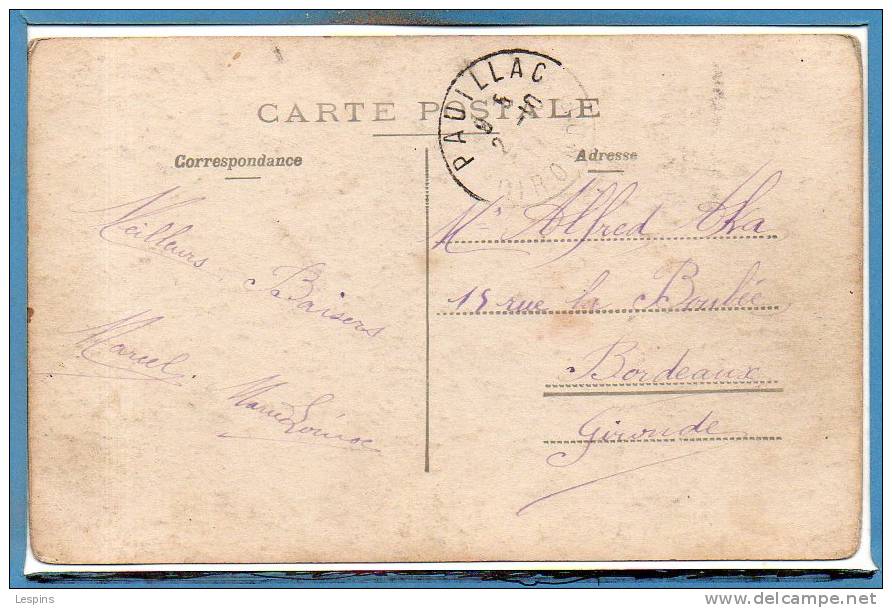 CARTE POSTALE
PAUILLAC
Correspondance
Adresse
Meilleurs
Baisers
Marcel
Marie Louise
Mr Alfred
15 rue la Boubée
Bordeaux
Gironde
Lespins
www.delcampe.net